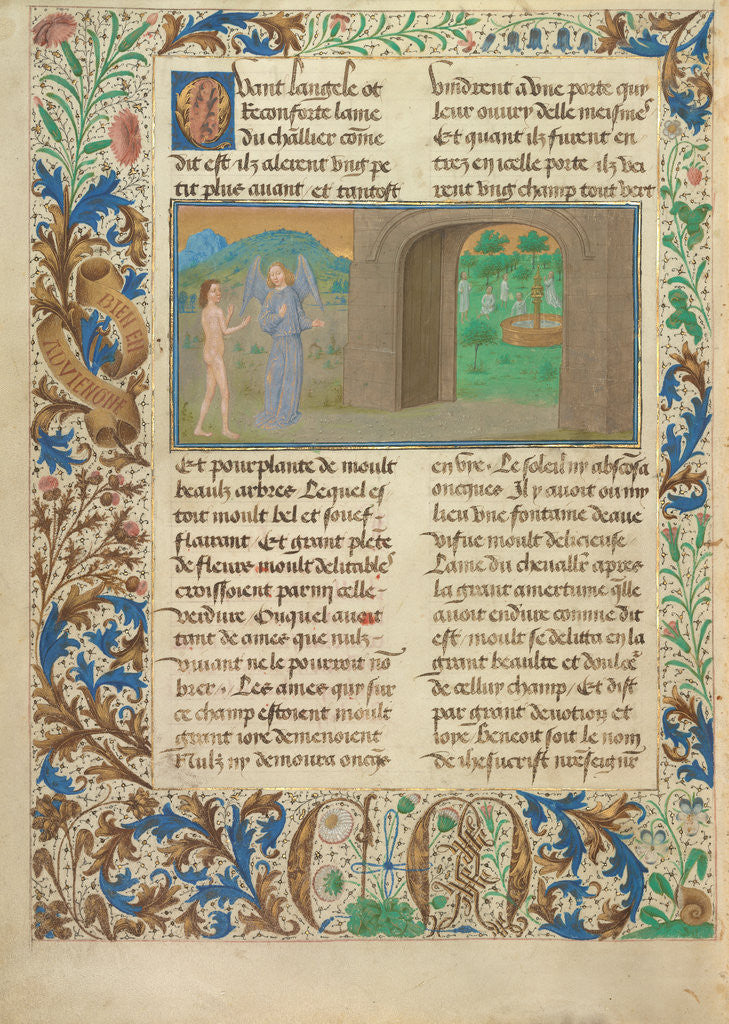 Quant langele ot
Reconforte lame
Du chãllier cõme
dit est ilz alerent vng pe
tit plus auant et tantost
vindrent a vne porte quy
leur ouury delle meisme
Et quant ilz furent en
trez en icelle porte ilz vei
rent vng champ tout vert
BIEN EN
AVIENGNE
Et pourplante de moult
beaulz arbres Lequel es
toit moult bel et souef
flairant / Et grant plẽte
de fleurs moult delitables
croissoient parmi celle
verdure / Ouquel auoit
tant de ames que nulz
viuant ne le pourroit nõ
brer / Les ames quy sur
ce champ estoient moult
grant ioye demenoient
Nulz ny demoura oncqs
en vye. Le soleil ny absconsa
oncques Il y auoit ou my
lieu vne fontaine deaue
viue moult delicieuse /
Lame du cheuallier apres
la grant amertume qlle
auoit endure comme dit
est / moult se delitta en la
grant beaulte et doulce
de celluy champ / Et dist
par grant deuotion et
ioye / Benoit soit le nom
de ihesucrist nreseignr
C M